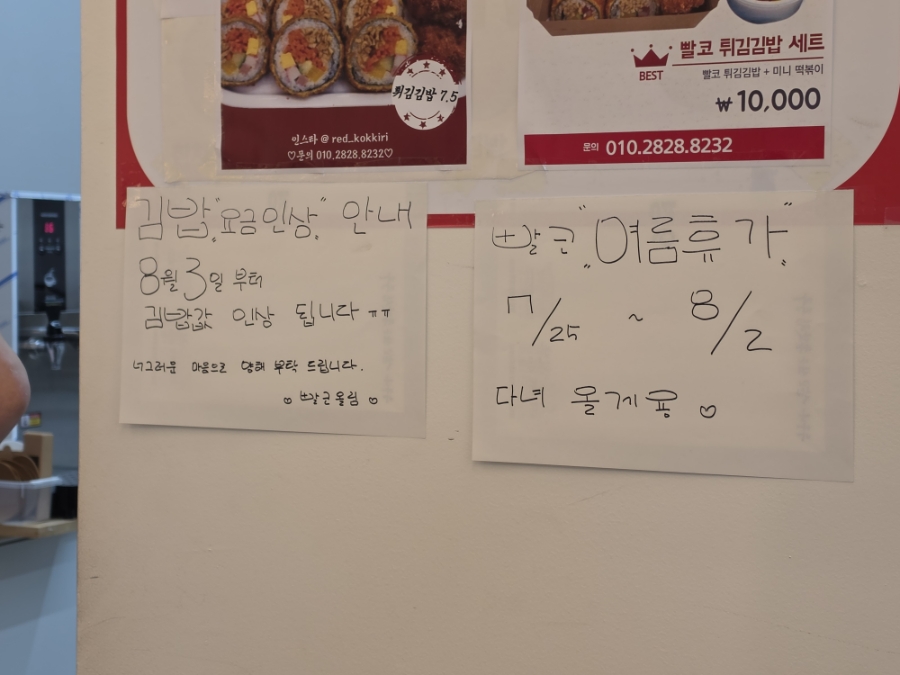 튀김김밥 7.5
인스타 @ red_kokkiri
♡문의 010.2828.8232♡
BEST
빨코 튀김김밥 세트
빨코 튀김김밥 + 미니 떡볶이
₩10,000
문의 010.2828.8232
김밥 "요금인상" 안내
8월 3일 부터
김밥값 인상 됩니다 ㅠㅠ
너그러운 마음으로 양해 부탁 드립니다.
♡ 빨근올림 ♡
빨코 "여름휴가"
7/25 ~ 8/2
다녀 올게용 ♡